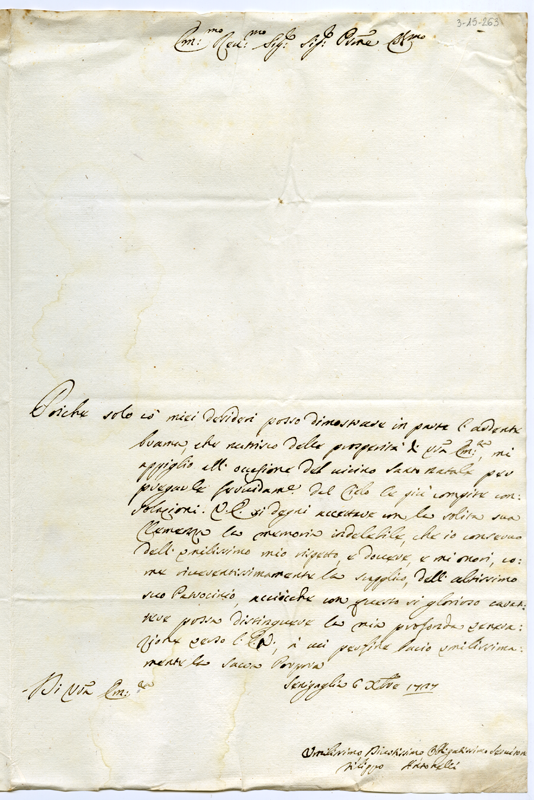 3-15-265
Em:mo Reu:mo Sig:r Sig:r Pñe Col:mo
Poiche solo co' miei desideri posso dimostrare in parte l'ardente
brama, che nutrisco delle prosperità di Vrã Em:za, mi
appiglio all' occasione del vicino Santo natale per
pregarle dal Cielo le più compite con-
solazioni. si degni accettare con la solita sua
Clemenza la memoria indelebile, che io conservo
dell' umilissimo mio rispetto, e dovere, e mi onori, co-
me riverentissimamente la supplico, dell' altissimo
suo Patrocinio, acciocche con questo sì glorioso carat-
tere possa distinguere la mia profonda venera-
zione verso l'E.V., à cui per fine bacio umilissima-
mente la Sacra Porpora
Di Vrã Em:za Senigaglia 6 Xbre 1727
Umilissimo Divotissimo Obligatissimo Servitore
Filippo Antonelli